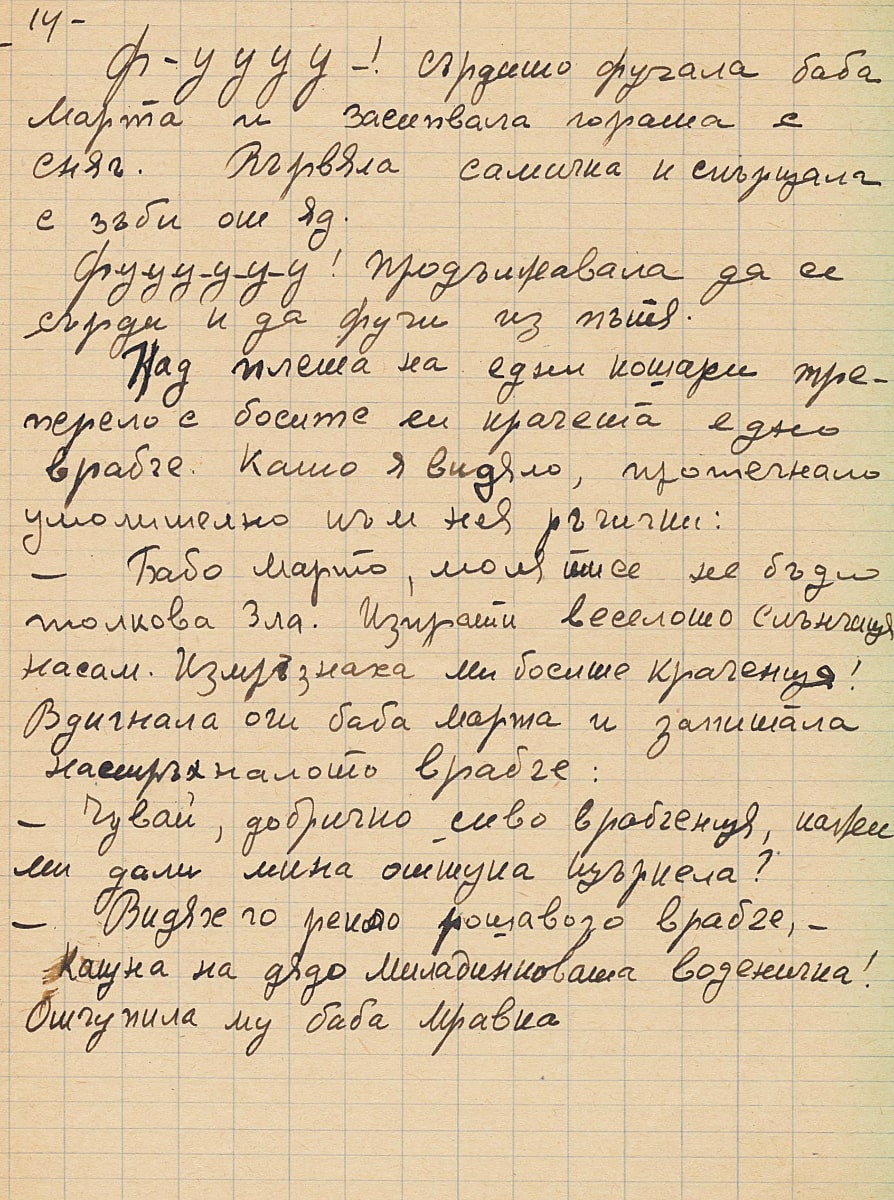 14 -
Ф-у у у у -! сърдито фучала баба
Марта и засипвала гората с
сняг. Вървяла самичка и скърцала
с зъби от яд.
Фу-у-у-у-у-у! продължавала да се
сърди и да фучи из пътя.
Над плета на едни кошари тре-
перело с босите си крачета едно
врабче. Като я видяло, протегнало
умолително към нея ръчички:
— Бабо Марто, моля ти се не бъди
толкова зла. Изпрати веселото слънчице
насам. Измръзнаха ми босите краченца!
Вдигнала очи баба Марта и запитала
настръхналото врабче:
— Чувай, добричко сиво врабченце, кажи
ми дали мина оттука щъркела?
— Видях го рекло рошавото врабче, –
Кацна на дядо Миладинковата воденичка!
Отчупила му баба Мравка